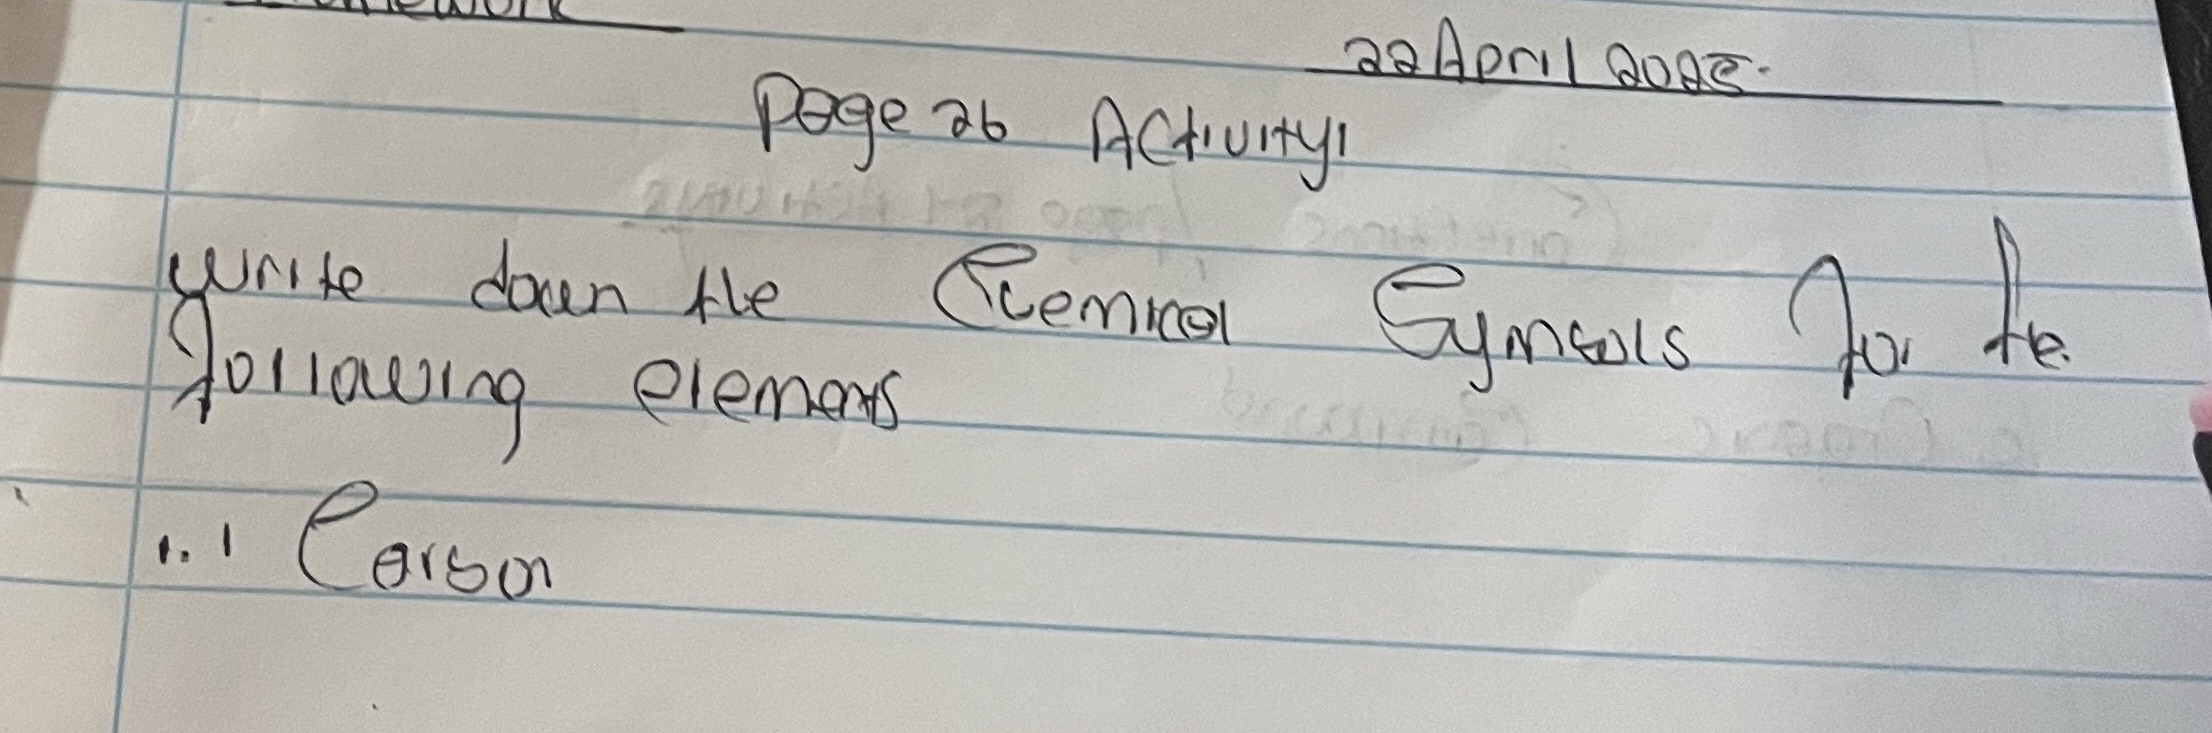 Homework
22 April 2025.
Page 26 Activity1
write down the Chemical Symbols for the
following elements
1.1 Carbon